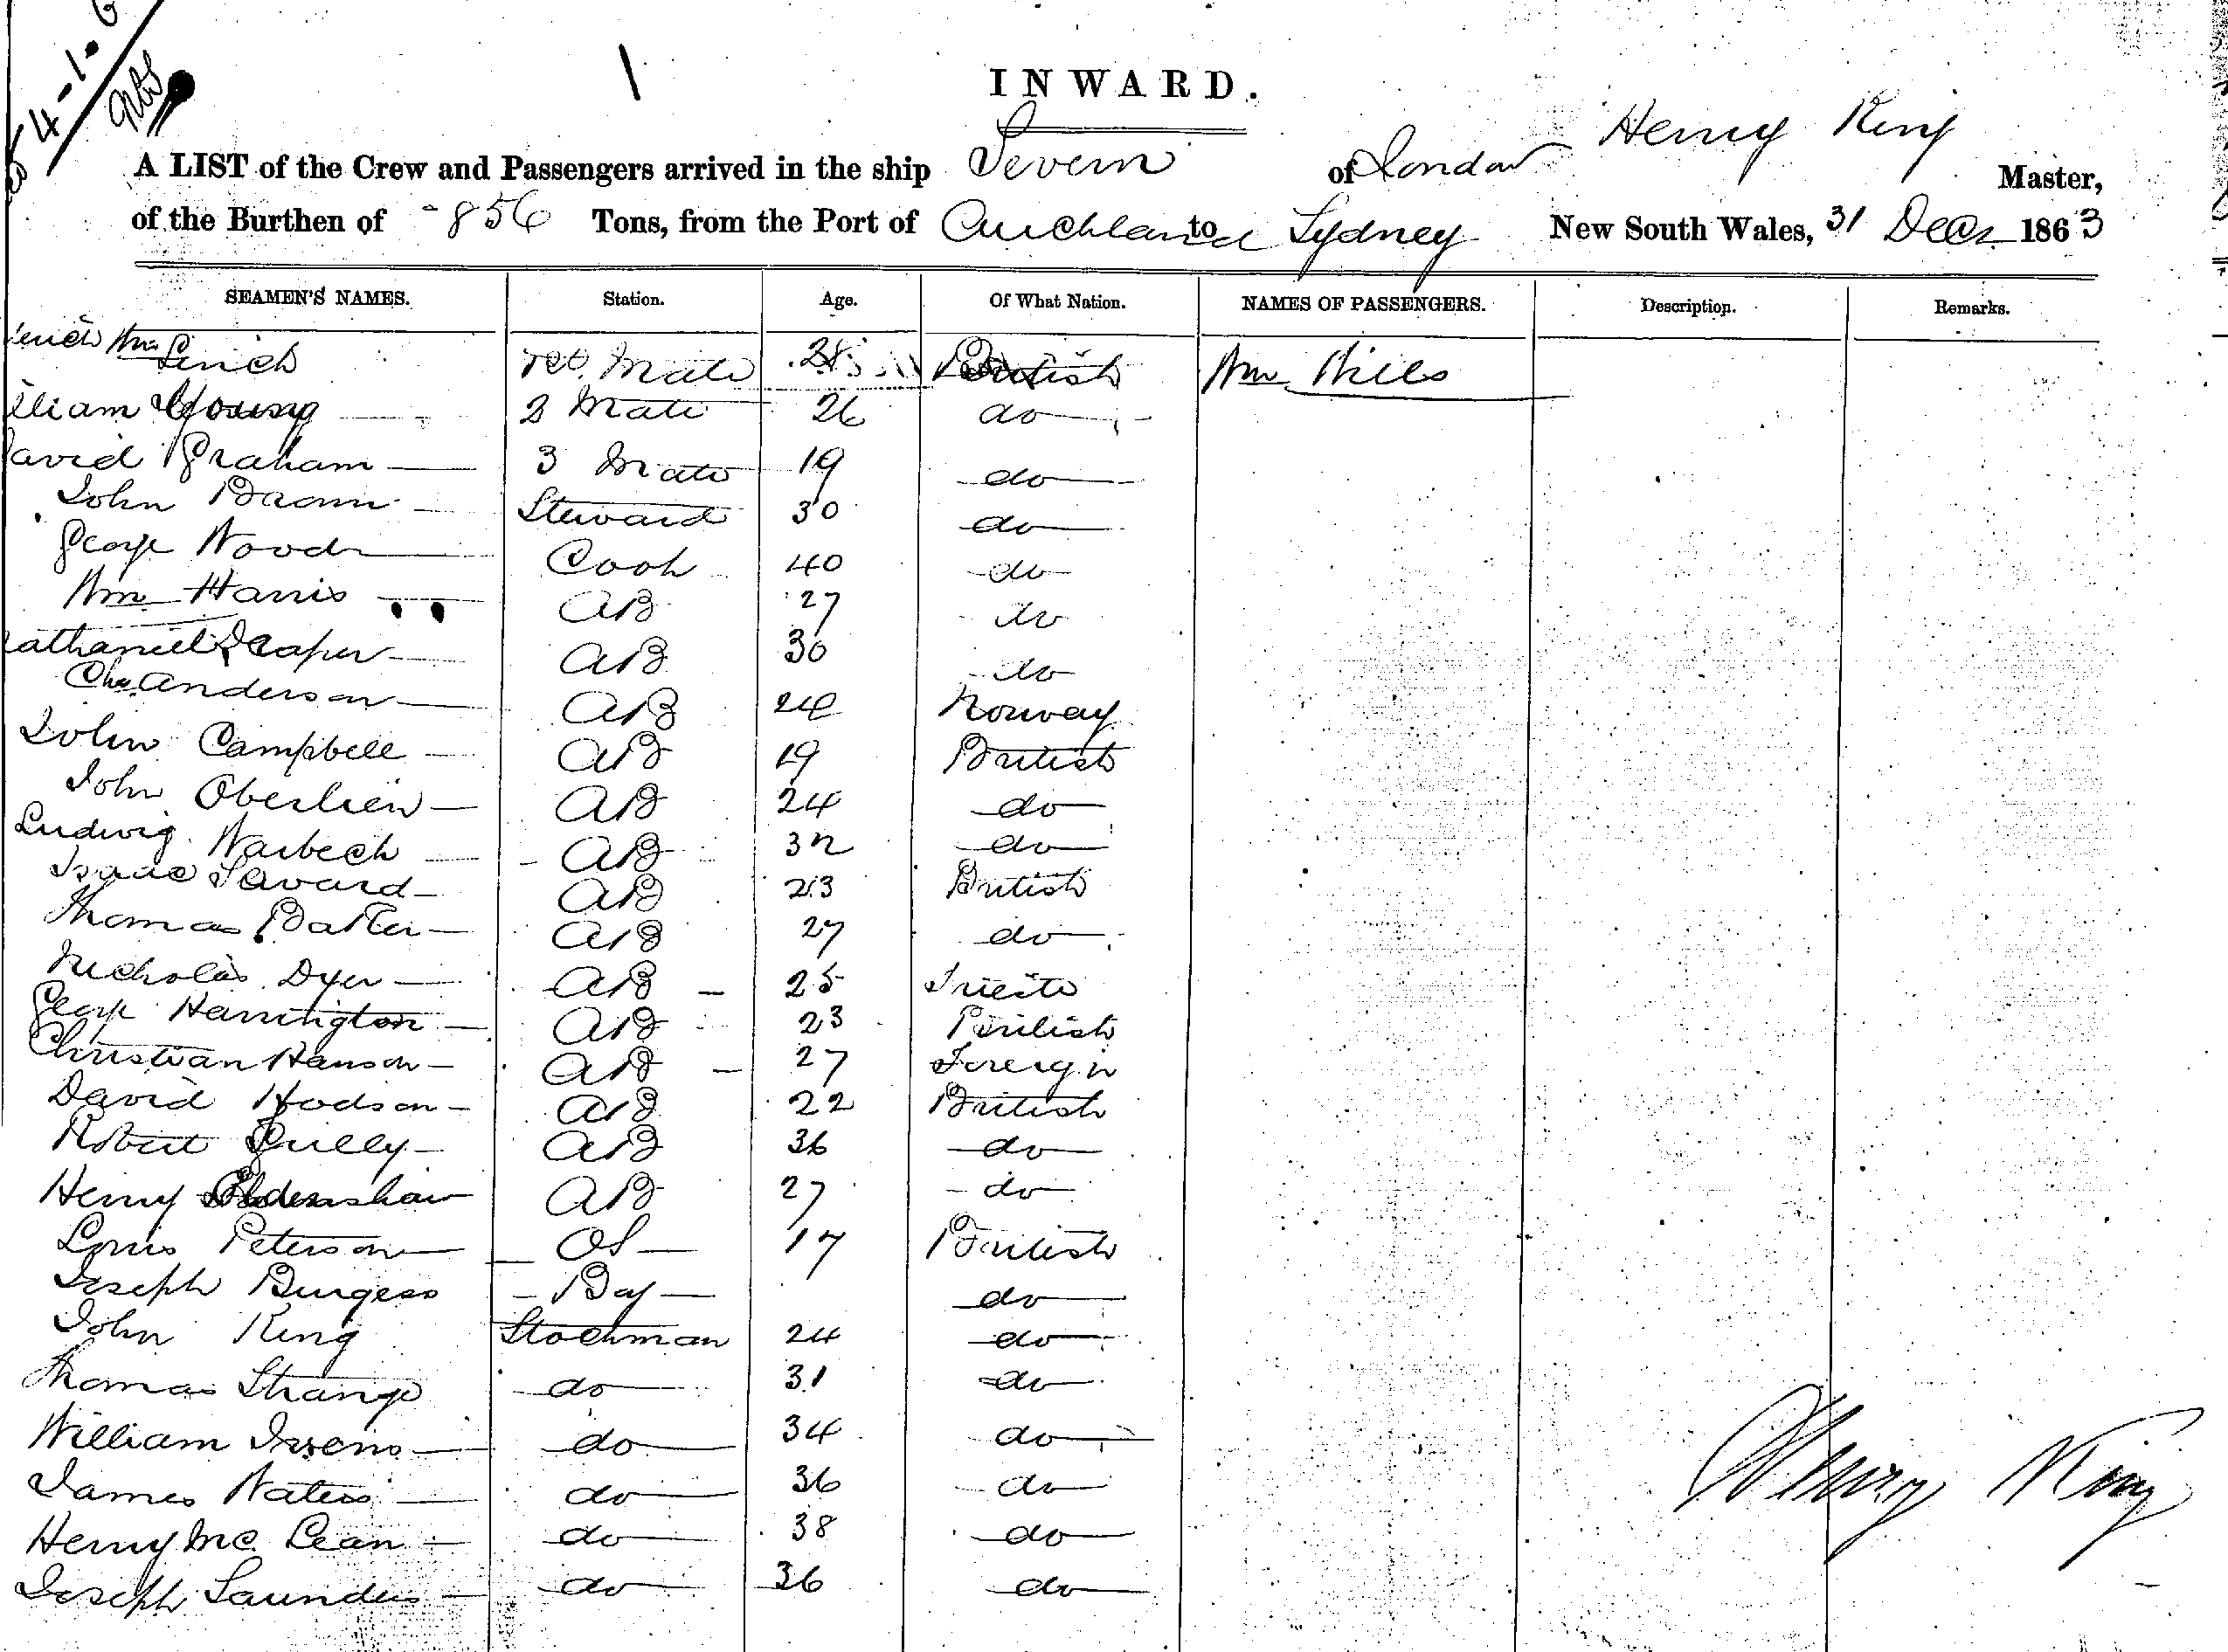 4-1-6
INWARD.
A LIST of the Crew and Passengers arrived in the ship Severn of London Henry King Master,
of the Burthen of 856 Tons, from the Port of Auckland to Sydney New South Wales, 31 Decr 1863
SEAMEN'S NAMES. Station. Age. Of What Nation. NAMES OF PASSENGERS. Description. Remarks.
Wm Linch Mate 28 British Wm Hills
illiam Young 2 Mate 26 do
avid Graham 3 Mate 19 do
John Brown Steward 30 do
George Wood Cook 40 do
Wm Harris AB 27 do
athaniel Draper AB 30 do
Chs Anderson AB 24 Norway
John Campbell AB 19 British
John Oberlien AB 24 do
Ludwig Warbeck AB 32 do
Isaac Savard AB 23 British
Thomas Batter AB 27 do
Nicholas Dyer AB 25 Trieste
George Harrington AB 23 British
Christian Hanson AB 27 Foreign
David Hodson AB 22 British
Robert Quilly AB 36 do
Henry Oldershaw AB 27 do
Louis Peterson OS 17 British
Joseph Burgess Boy do
John King Stockman 24 do
Thomas Strange do 31 do
William Irvens do 34 do
James Waters do 36 do
Henry Mc Lean do 38 do
Joseph Saunders do 36 do
Henry King